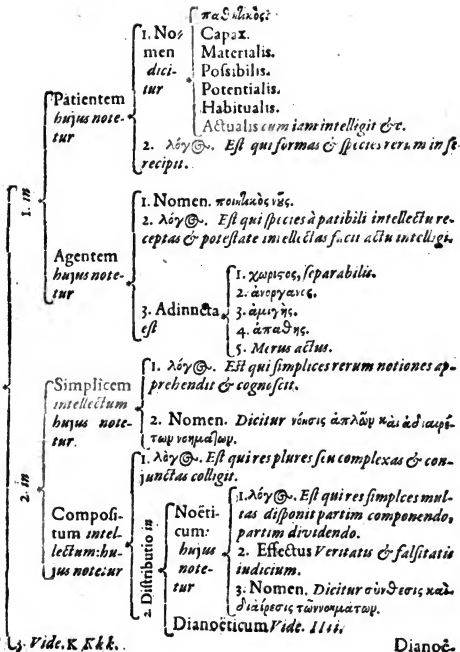 παθητικός:
1. No-
men
dici-
tur
Capax.
Materialis.
Poſſibilis.
Potentialis.
Habitualis.
Actualis cum iam intelligit &c.
Patientem
hujus note-
tur
2. λόγος. Eſt qui formas & ſpecies rerum in ſe
recipit.
1. in
1. Nomen. ποιητικὸς νῦς.
2. λόγος. Eſt qui ſpecies à patibili intellectu re-
ceptas & poteſtate intellectas facit actu intelligi.
Agentem
hujus note-
tur
3. Adiuncta
eſt
1. χωριστος, ſeparabilis.
2. ἀνοργανος.
3. ἀμιγής.
4. ἀπαθης.
5. Merus actus.
2. in
Simplicem
intellectum
hujus note-
tur.
1. λόγος. Eſt qui ſimplices rerum notiones ap-
prehendit & cognoſcit.
2. Nomen. Dicitur νόησις ἁπλῶν καὶ ἀδιαιρέ-
των νοημάτων.
Compoſi-
tum intel-
lectum: hu-
jus notetur
1. λόγος. Eſt qui res plures ſeu complexas & con-
junctas colligit.
2. Diſtributio in
Noëti-
cum:
hujus
note-
tur
1. λόγος. Eſt qui res ſimplces mul-
tas diſponit partim componendo,
partim dividendo.
2. Effectus Veritatis & falſitatis
iudicium.
3. Nomen. Dicitur σύνθεσις καὶ
διαίρεσις τῶν νοημάτων.
Dianoëticum Vide. Iiii.
3. Vide. K Kkk.
Dianoë-